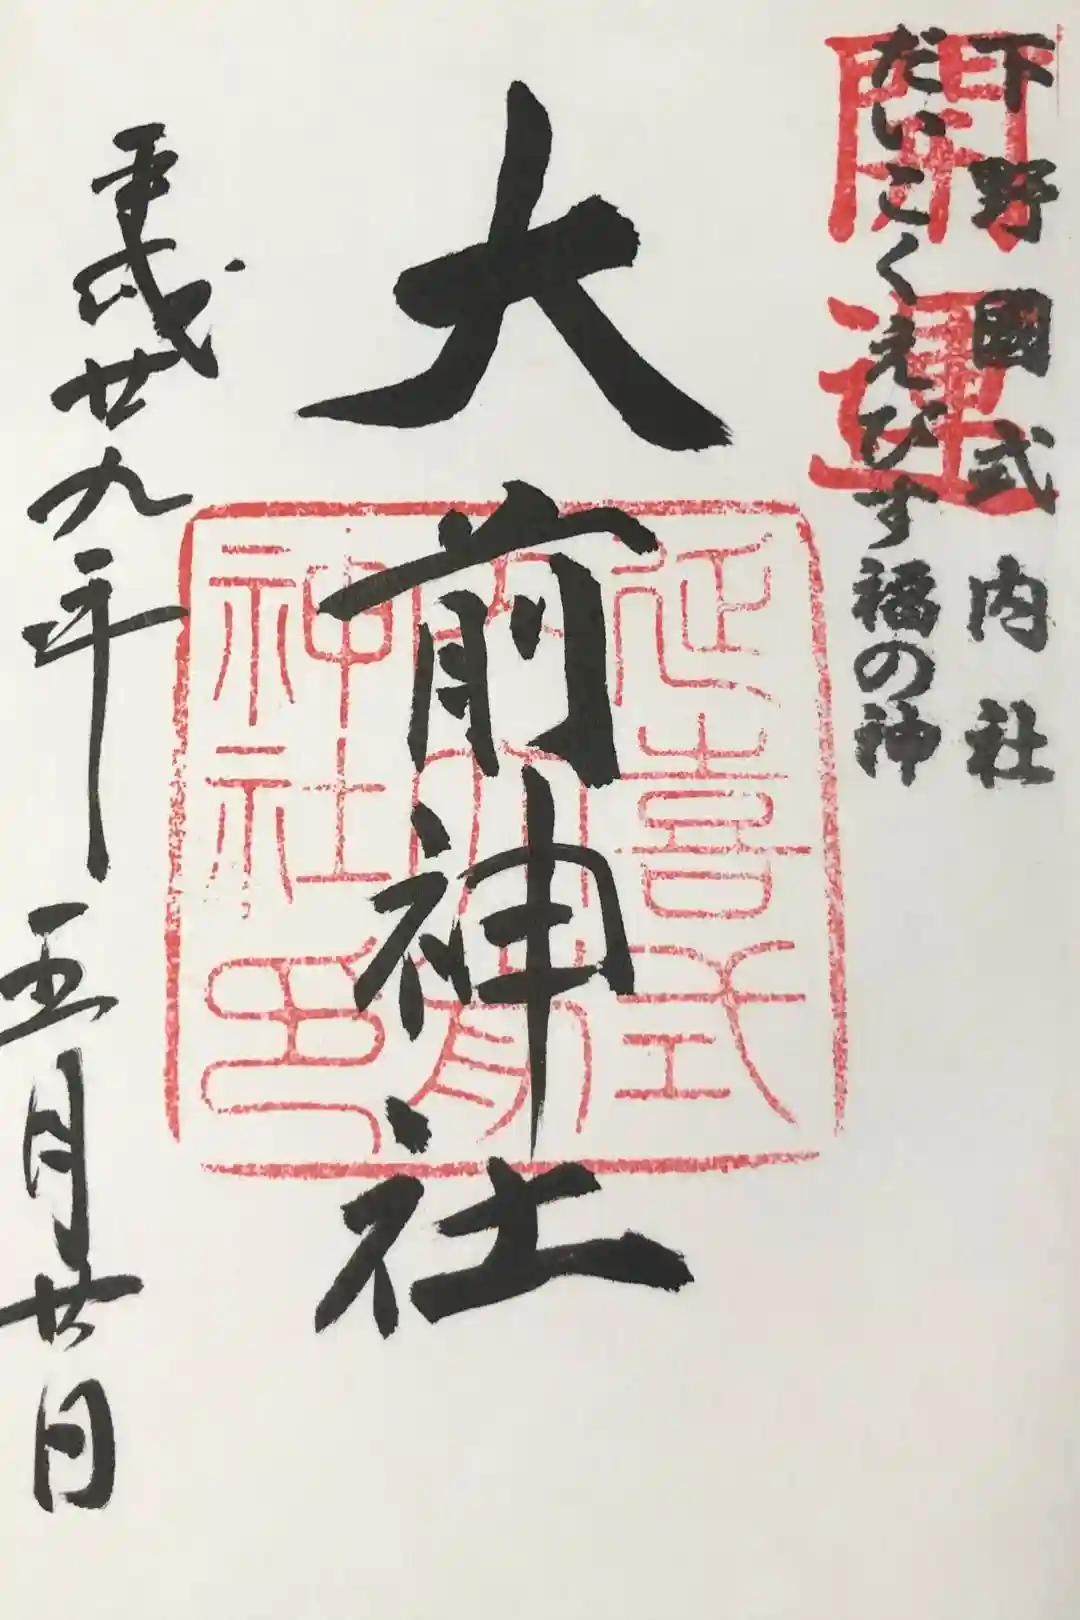 下野國式内社
だいこくえびす福の神
開運
大前神社
延喜式
内大前
神社印
平成廿九年五月廿日